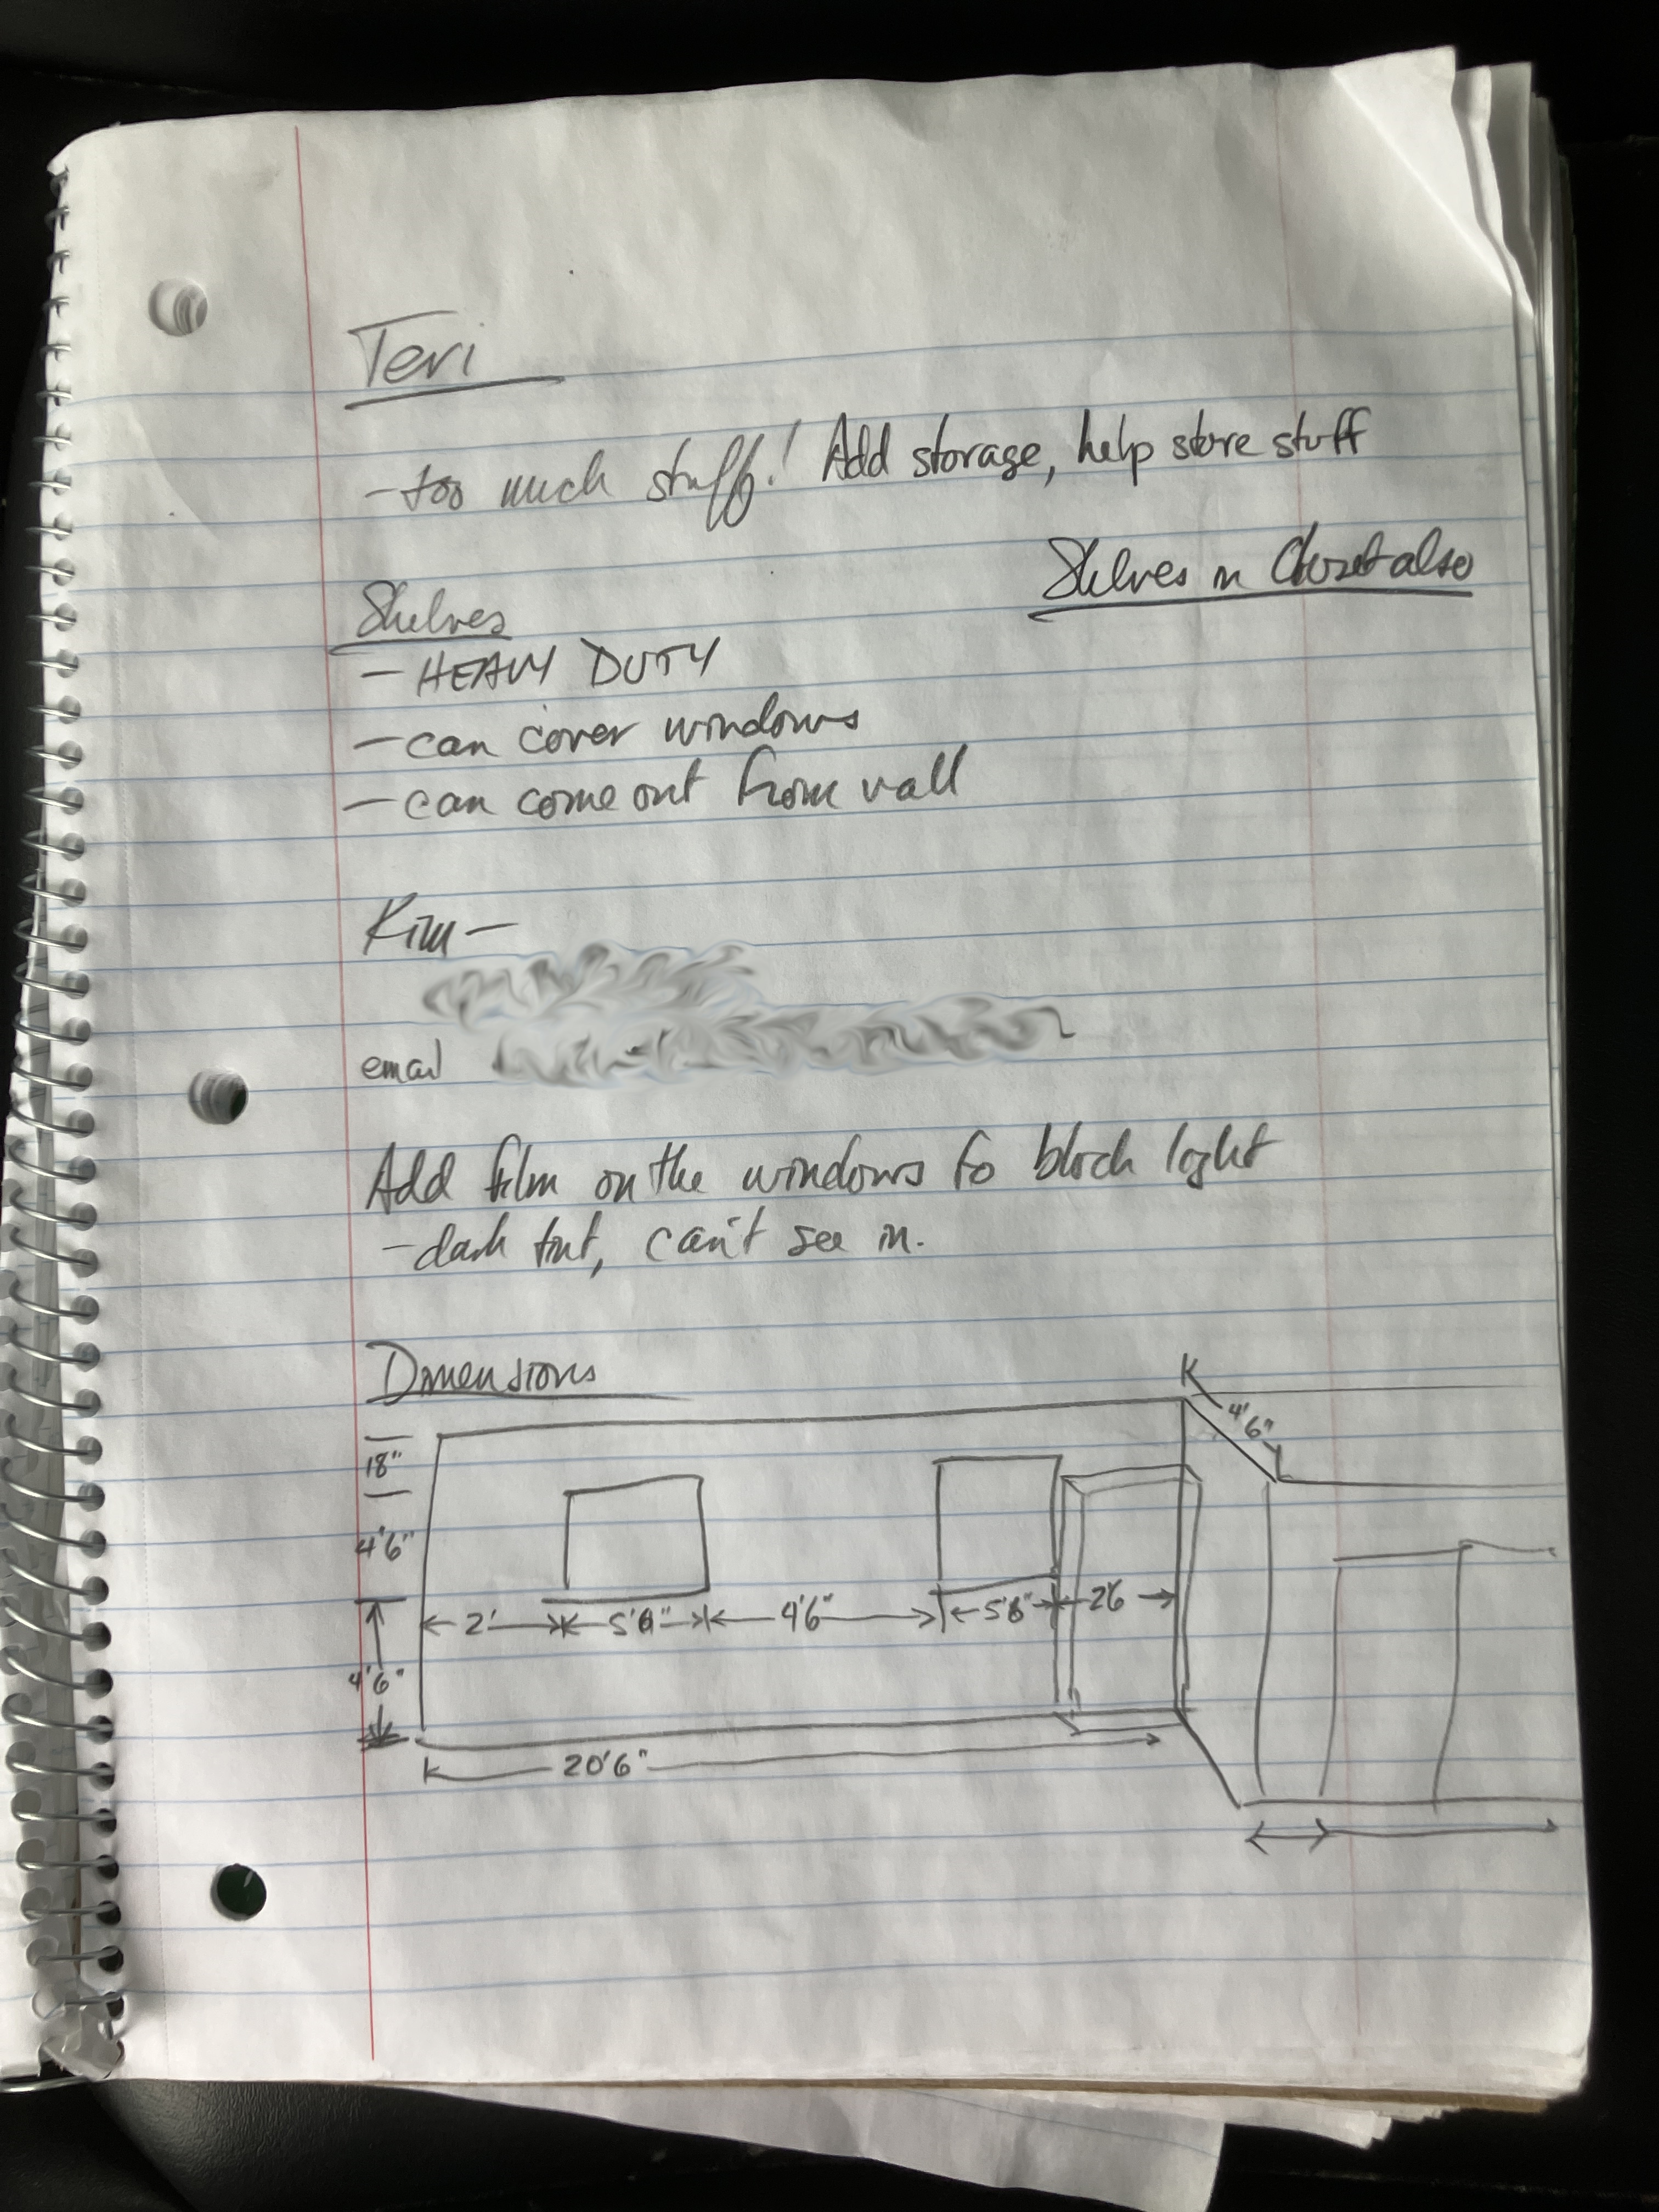 Teri
- too much stuff! Add storage, help store stuff
Shelves in Closet also
Shelves
- HEAVY DUTY
- can cover windows
- can come out from wall
Kim -
email
Add film on the windows to block light
- dark tint, can't see in.
Dimensions
4'6"
18"
4'6"
2' 4'6" 5'6" 2'6
4'6"
20'6"